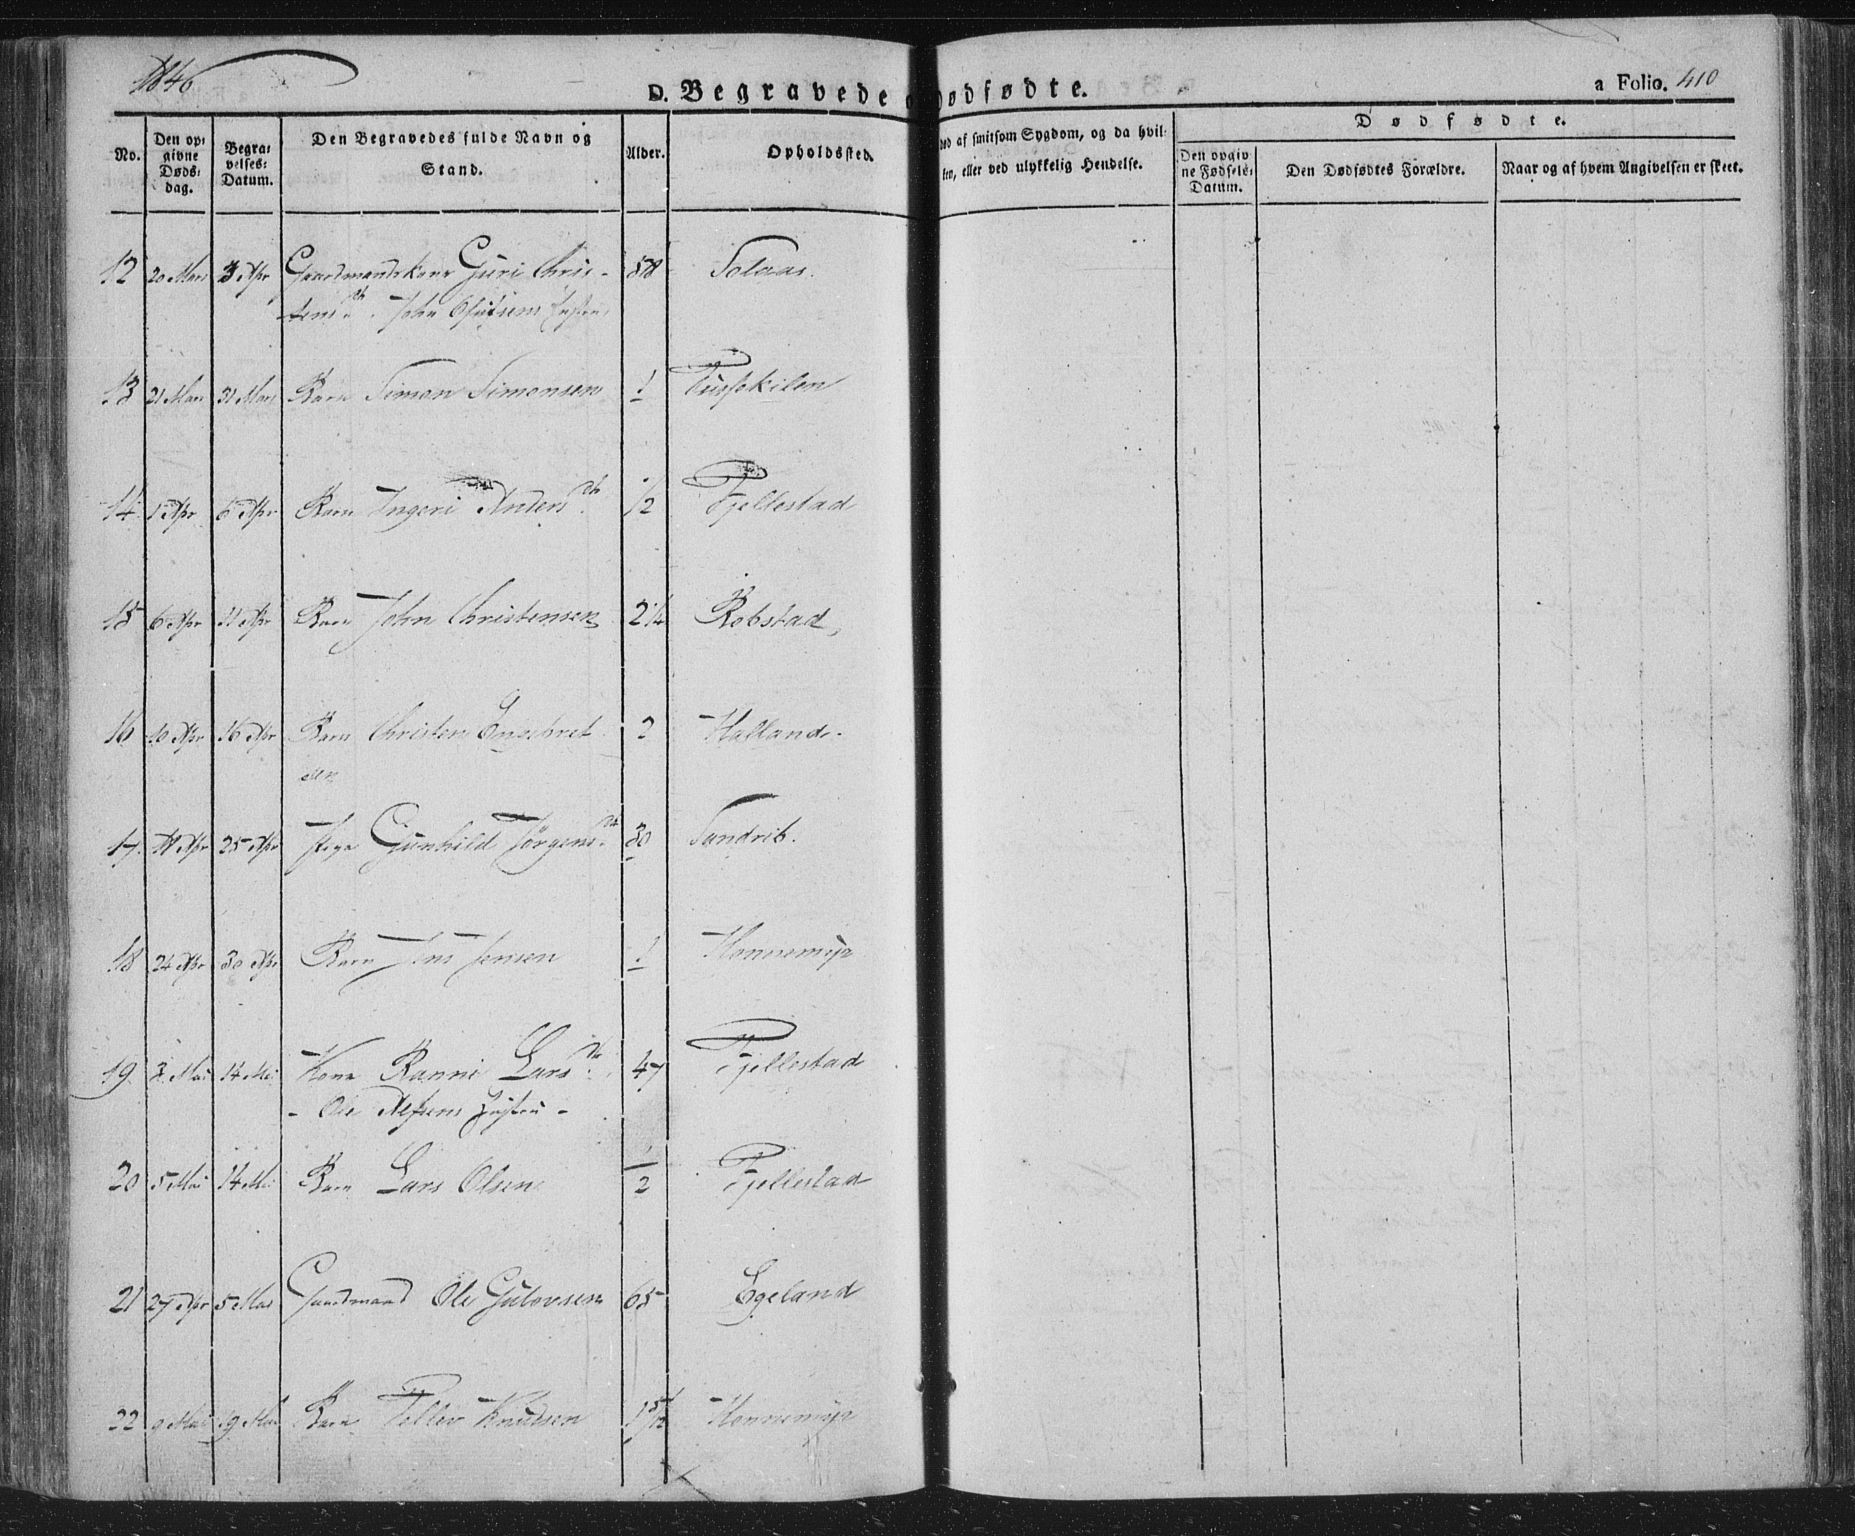 1846
D. Begravede o Dødfødte.
a Folio. 410
No.
Den op-
givne
Døds-
dag.
Begra-
velses-
Datum.
Den Begravedes fulde Navn og
Stand.
Alder.
Opholdssted.
død af smitsom Sygdom, og da hvil-
ken, eller ved ulykkelig Hendelse.
Dødfødte.
Den opgiv
ne Fødsels-
Datum.
Den Dødfødtes Forældre.
Naar og af hvem Angivelsen er skeet.
12 20 Mars 3 Apr Gaardmandskone Guri Chris-
tensdtr. John Hustru 58 Solaas.
13 21 Mars 31 Mars Barn Simon Simonsen 1
14 1 Apr 6 Apr Barn Ingeri Andersdtr 1/2 Fjellestad
15 6 Apr 11 Apr Barn John Christensen 2 1/4 Robstad,
16 10 Apr 16 Apr Barn Christen Engebret
sen 2 Halland.
17 11 Apr 25 Apr Pige Gunhild Jørgensdtr 30 Sundrib.
18 24 Apr 30 Apr Barn Jens Jensen 1 Honnemyr
19 3 Mai 14 Mai Kone Ranni Larsdtr. 47 Fjellestad
- Ole Alfsens Hustru -
20 5 Mai 14 Mai Barn Lars Olsen 1/2 Fjellestad
21 27 Apr 5 Mai Gaardmand Ole Gulovsen 65 Egeland
22 9 Mai 19 Mai Barn Tellev Knudsen 1 5/12 Honnemyr